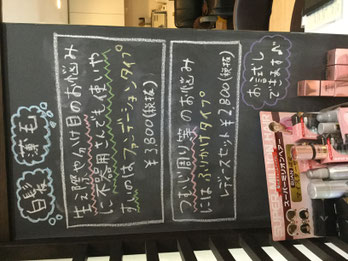 白髪 薄毛
生え際や分け目のお悩み
に不器用さんでも使いや
すいのはファンデーションタイプ
¥3,800(税抜)
つむじ周り等のお悩み
にはふりかけタイプ
レディースセット ¥2,800(税抜)
お試し
できます
スーパーミリオンヘアー